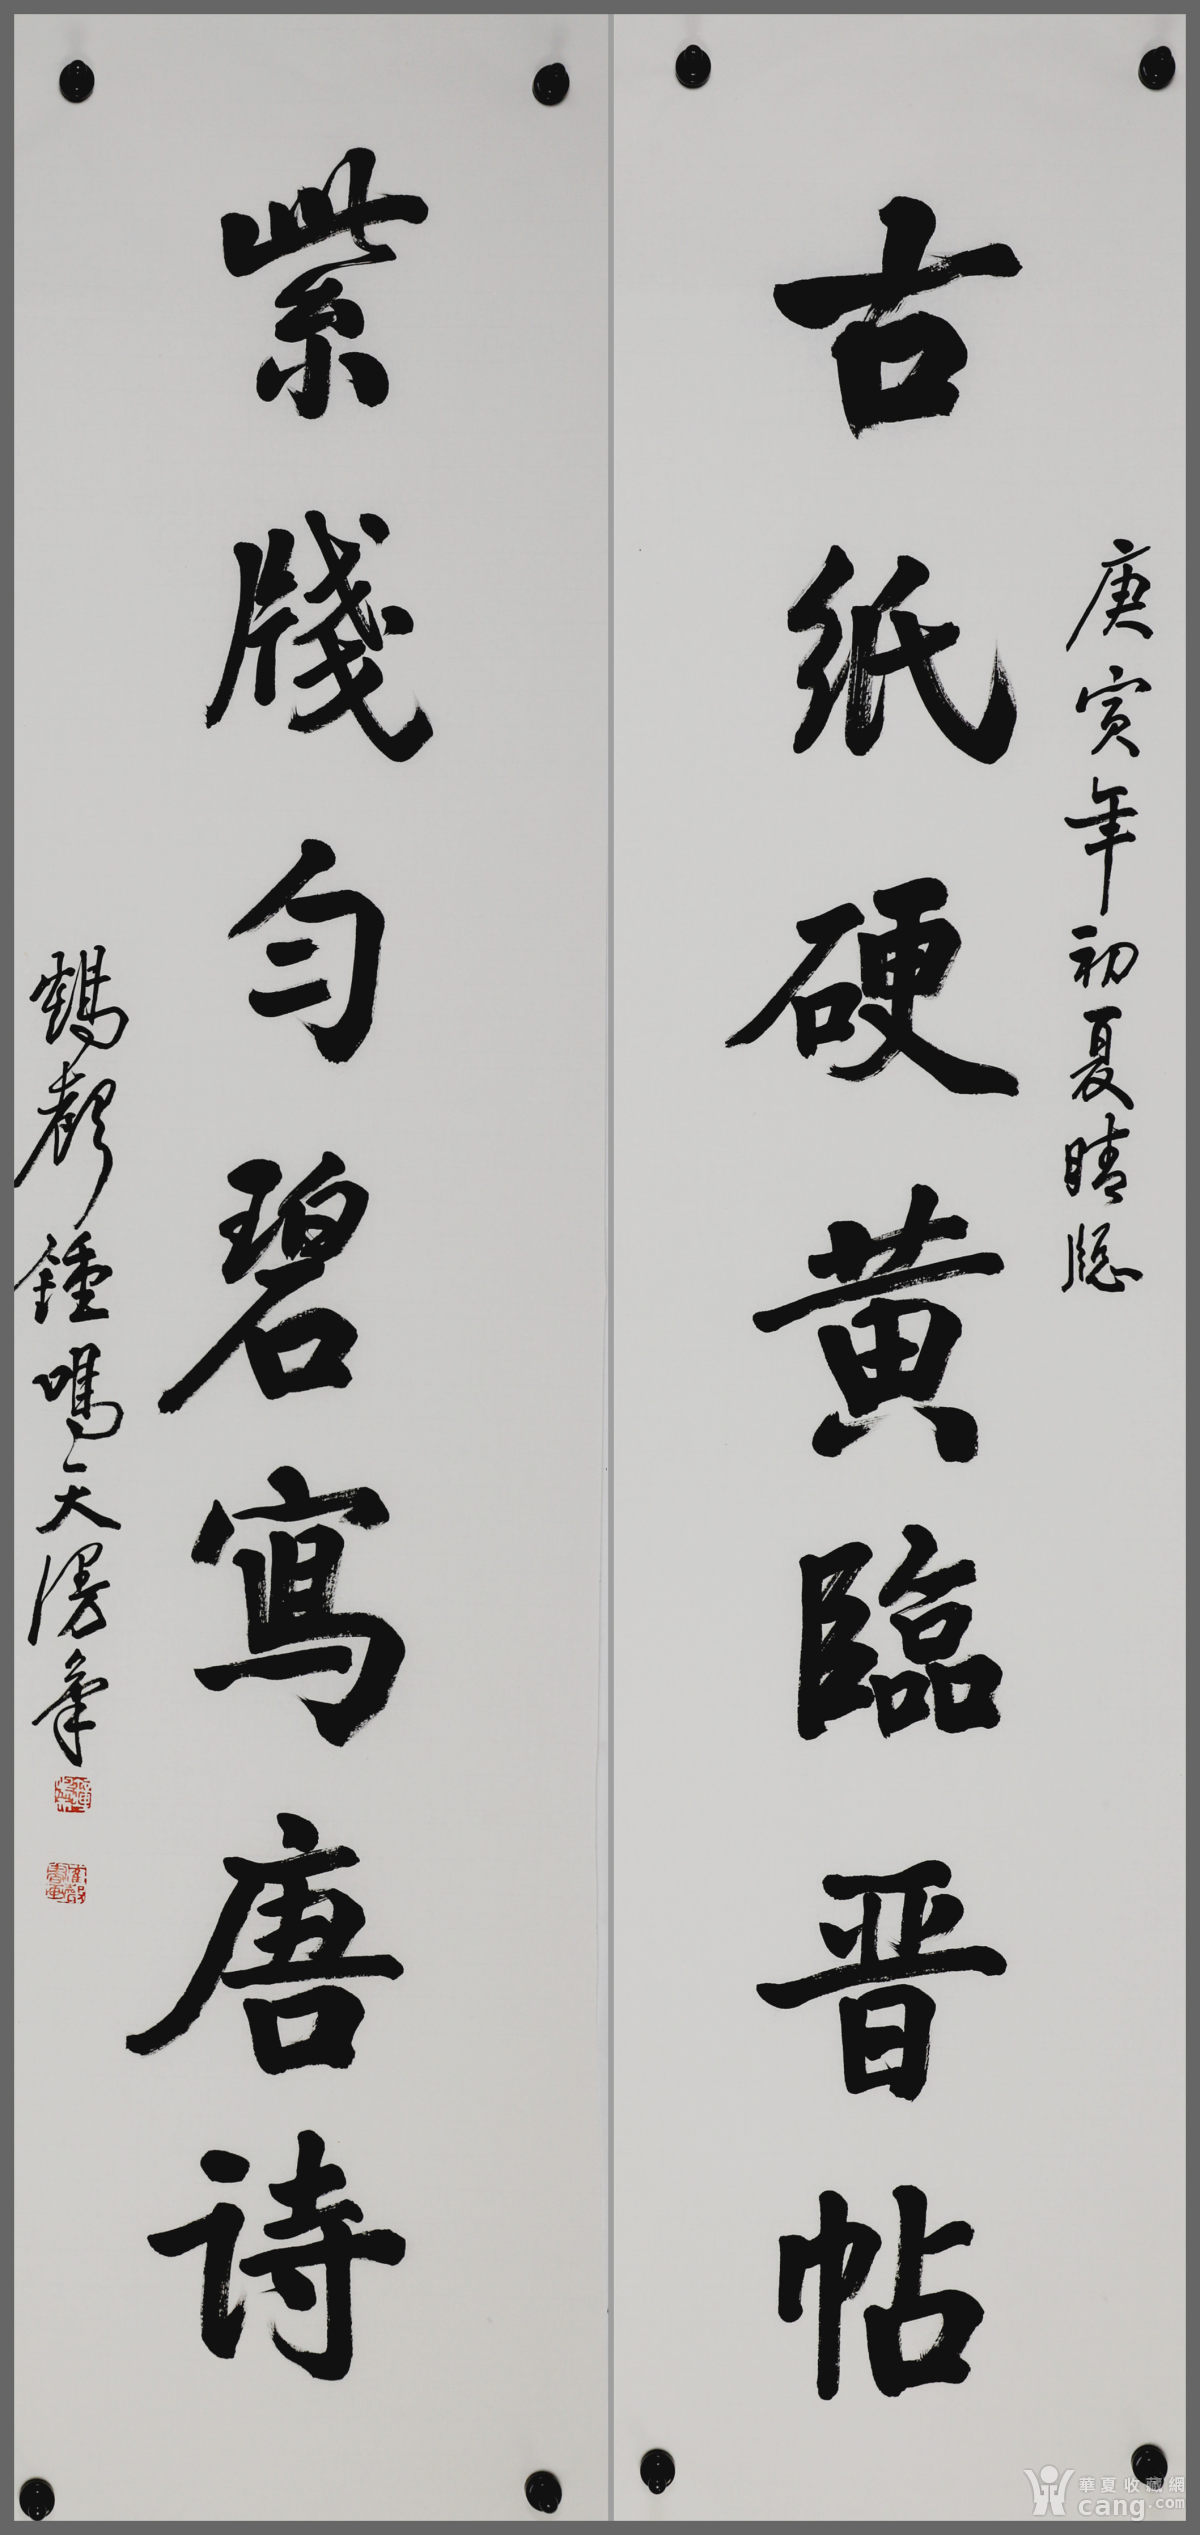 庚寅年初夏晴牕
古紙硬黄臨晋帖
紫牋匀碧寫唐诗
鶴 鍾鳴天漫筆
華夏收藏網
cang.com